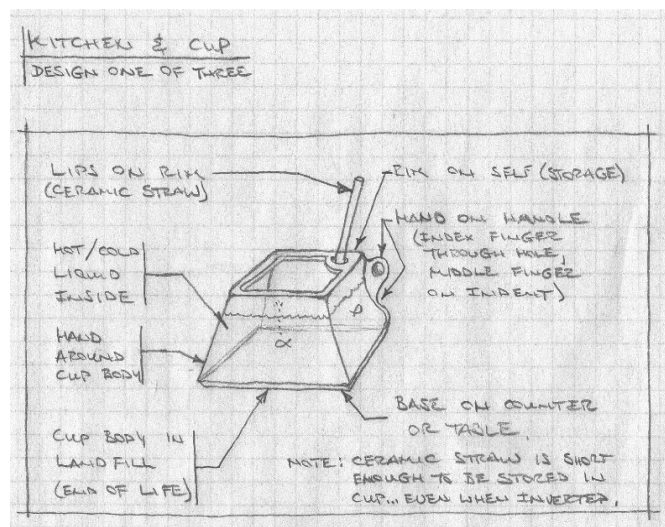 KITCHEN & CUP
DESIGN ONE OF THREE
LIPS ON RIM
(CERAMIC STRAW)
RIM ON SELF (STORAGE)
HAND ON HANDLE
(INDEX FINGER
THROUGH HOLE,
MIDDLE FINGER
ON INDENT)
HOT/COLD
LIQUID
INSIDE
α
ρ
HAND
AROUND
CUP BODY
BASE ON COUNTER
OR TABLE.
CUP BODY IN
LAND FILL
(END OF LIFE)
NOTE: CERAMIC STRAW IS SHORT
ENOUGH TO BE STORED IN
CUP... EVEN WHEN INVERTED.